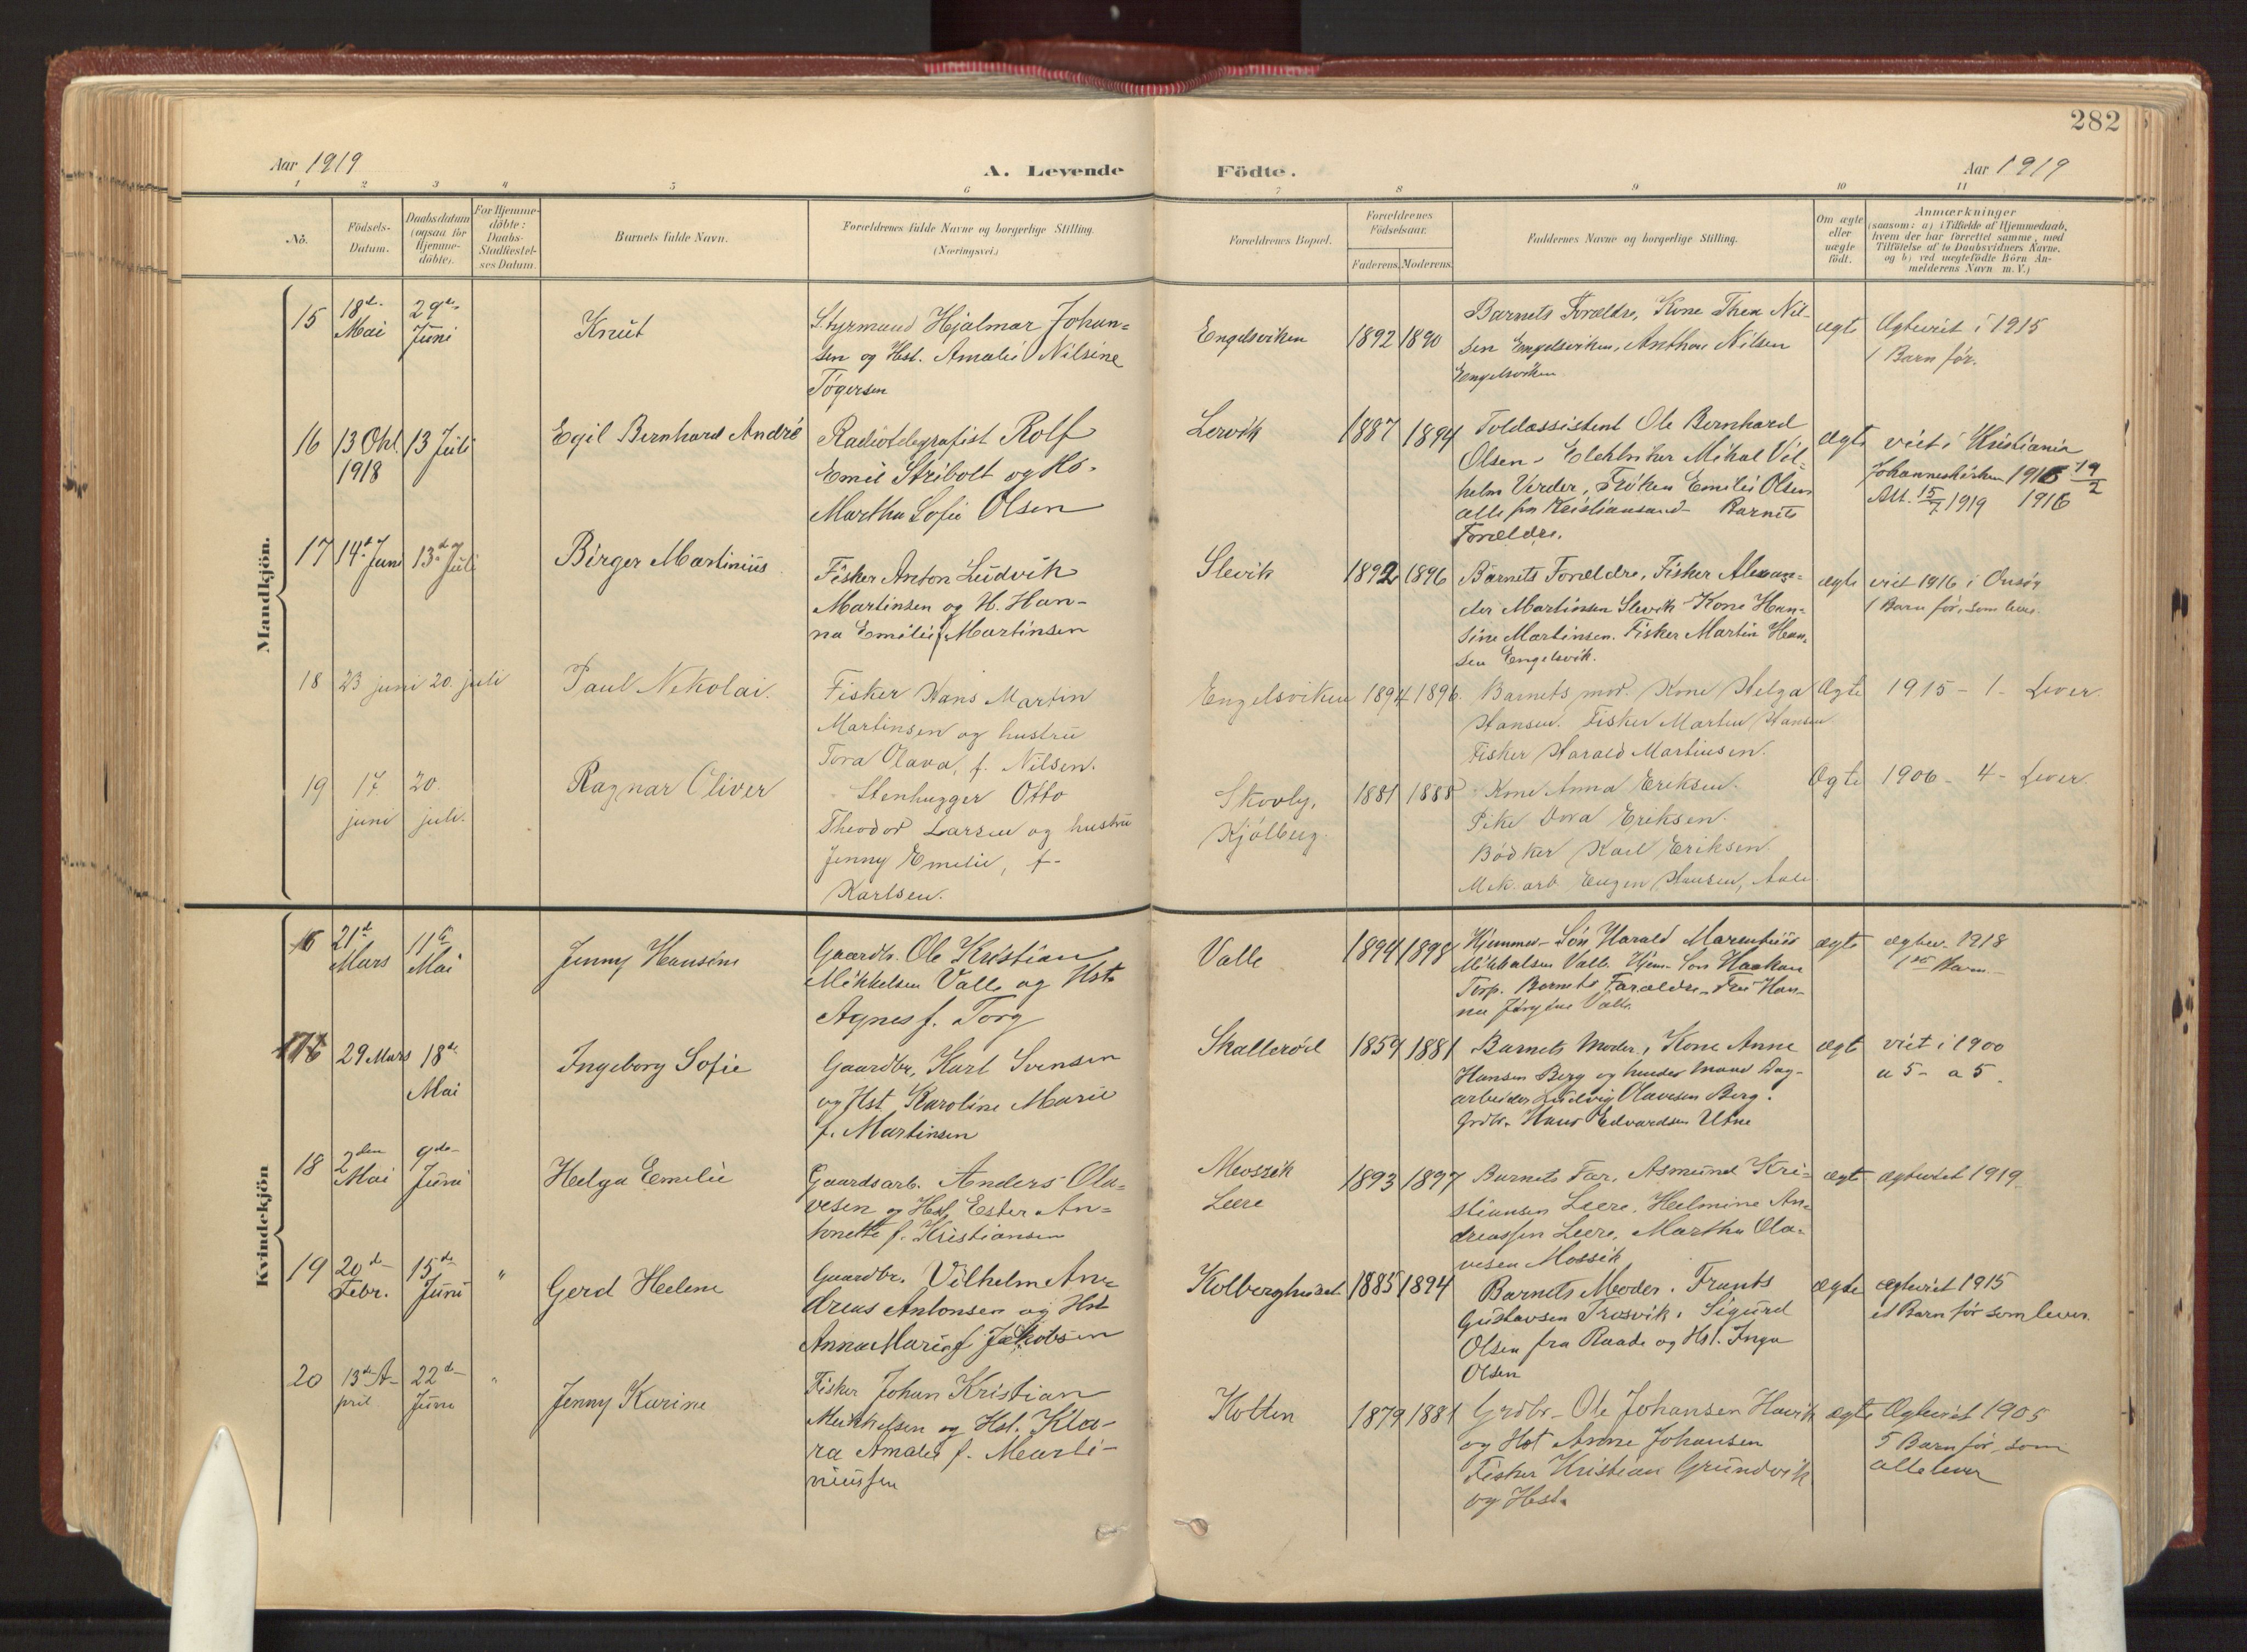 282
Aar 1919
A. Levende
Födte.
Aar 1919
1 2 3 4 5 6 7 8 9 10 11
No.
Födsels-
Datum.
Daabsdatum
(ogsaa for
Hjemme-
döbte).
For Hjemme-
döbte:
Daabs-
Stadfæstel-
ses Datum.
Barnets fulde Navn.
Forældrenes fulde Navne og borgerlige Stilling.
(Næringsvei.)
Forældrenes Bopæl.
Forældrenes
Födselsaar.
Faderens. Moderens.
Faddernes Navne og borgerlige Stilling.
Om ægte
eller
uægte
födt.
Anmærkninger
(saasom: a) i Tilfælde af Hjemmedaab,
hvem der har forrettet samme, med
Tilföielse af to Daabsvidners Navne,
og b) ved uægtefödte Börn An-
melderens Navn m. V.)
Mandkjön.
15
18de
Mai
29de
Juni
Knut
Styrmand Hjalmar Johan=
sen og Hst. Amalie Nilsine
Tögersen
Engelsviken
1892 1890
Barnets Forældre, Kone Thea Nil-
sen Engelsviken, Anthon Nilsen
Engelsviken
ægte
Ægteviet i 1915
1 Barn før.
16
13 Okt.
1918
13 Juli
Egil Bernhard André
Radiotelegrafist Rolf
Emil Stribolt og Hs.
Martha Sofie Olsen
Lervik
1887 1894
Toldassistent Ole Bernhard
Olsen - Elektriker Mikal Vil-
helm Verder, Frøken Emilie Olsen
alle fra Kristiansand - Barnets
Forældre.
ægte
viet i Kristiania
Johanneskirken 1916 19/2
Att. 15/7 1919 1916
17
14de Juni
13de Juli
Birger Martinius
Fisker Anton Ludvik
Martinsen og H. Han-
na Emilie f Martinsen
Slevik
1892 1896
Barnets Forældre, Fisker Alexan=
der Martinsen Slevik - Kone Han=
sine Martinsen. Fisker Martin Han=
sen Engelsvik.
ægte
viet 1916 i Onsøy
1 Barn før, som lever.
18
23 juni
20. juli
Paul Nikolai.
Fisker Hans Martin
Martinsen og hustru
Tora Olava, f. Nilsen.
Engelsviken
1894 1896.
Barnets mor. Kone Helga
Hansen. Fisker Martin Hansen.
Fisker Harald Martinsen.
Ægte
1915 - 1 - Lever.
19
17.
juni
20.
juli.
Ragnar Oliver
Stenhugger Otto
Theodor Larsen og hustru
Jenny Emilie, f.
Karlsen.
Skovly,
Kjölberg.
1881 1888
Kone Anna Eriksen.
Pike Dora Eriksen.
Bödker Karl Eriksen.
Mek. arb. Eugen Hansen,
Ægte
1906 - 4 - Lever
Kvindekjön
16
21de
Mars
11te
Mai
Jenny Hansine
Gaardbr. Ole Kristian
Mikkelsen Valle og Hst.
Agnes f. Torp
Valle
1894 1898
Hjemmev. Søn Harald Marentius
Mikkelsen Valle. Hjem. Søn Haakon
Torp. Barnets Forældre - Fru Han-
na Jørgine Valle.
ægte
ægtev. 1918
1ste Barn.
17
29 Mars
18de
Mai
Ingeborg Sofie
Gaardbr. Karl Svensen
og Hst Karoline Marie
f. Martinsen
Skallerød
1859 1881
Barnets Moder, Kone Anne
Hansen Berg og hendes Mand Dag-
arbeider Ludvig Olavesen Berg.
Grdbr. Hans Edvardsen Utne
ægte
viet i 1900
a 5 - a 5.
18
2den
Mai
9de
Juni
Helga Emilie
Gaardsarb. Anders Ola=
vesen og Hst. Ester An=
tonette f. Kristiansen
Mossik
Leere
1893 1897
Barnets Far, Asmund Kri-
stiansen Leere, Helmine An=
dreassen Leere, Martha Ola-
vesen Mossik
ægte
ægteviet 1919
19
20de
Febr.
15de
Juni
"
Gerd Helene
Gaardbr. Vilhelm An=
dreas Antonsen og Hst
Anna Marie f Jakobsen
Kolberghuset
1885 1894
Barnets Moder. Frants
Gustavsen Trosvik, Sigurd
Olsen fra Raade og Hst. Inga
Olsen
ægte
ægteviet 1915
et Barn før som lever.
20
13de A-
pril
22de
Juni
"
Jenny Karine
Fisker Johan Kristian
Mikkelsen og Hst. Kla-
ra Amalie f. Marti-
niussen
Kotten
1879 1881
Grdbr - Ole Johansen Hauvik
og Hst Anne Johansen
Fisker Kristian Grundvik
og Hst.
ægte
Ægteviet 1905
5 Barn før, som
alle lever